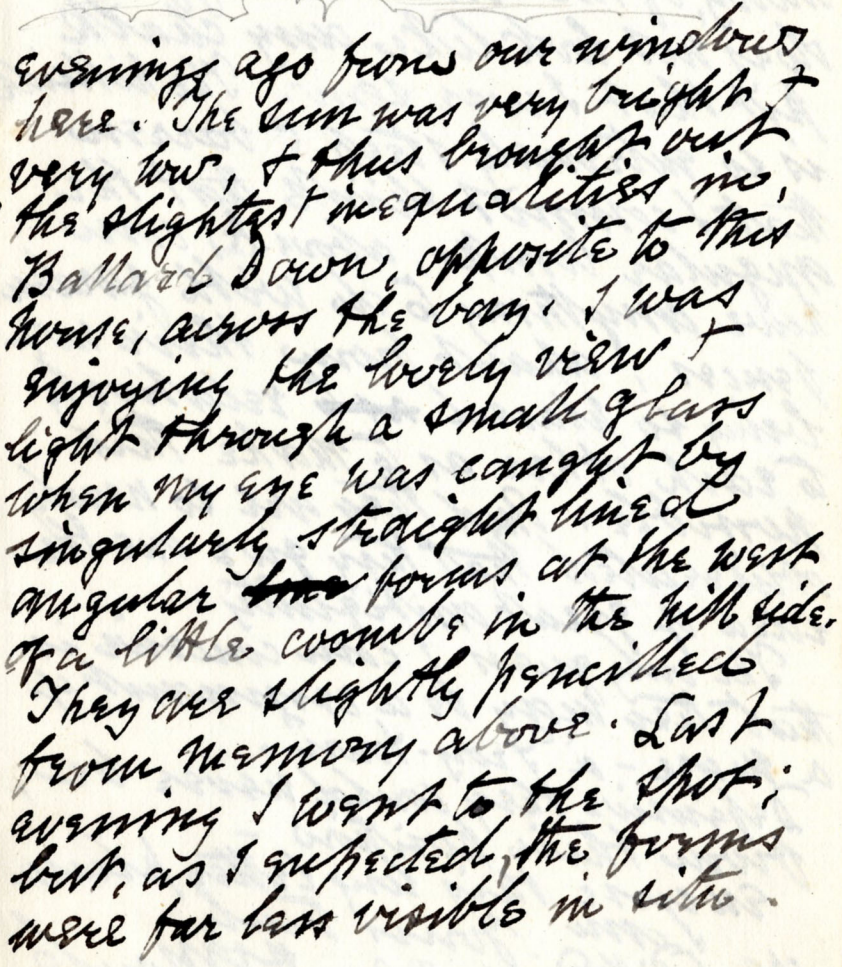 evenings ago from our windows
here. The sun was very bright &
very low, & thus brought out
the slightest inequalities in,
Ballard Down, opposite to this
house, across the bay. I was
enjoying the lovely view &
light through a small glass
when my eye was caught by
singularly straight lined
angular forms at the west
of a little coombe in the hill side.
They are slightly pencilled
from memory above. Last
evening I went to the spot;
but, as I expected, the forms
were far less visible in situ.